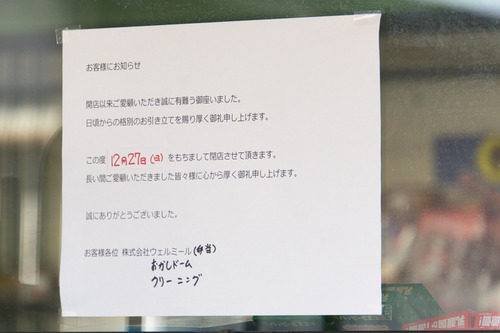 お客様にお知らせ
開店以来ご愛顧いただき誠に有難う御座いました。
日頃からの格別のお引き立てを賜り厚く御礼申し上げます。
この度 12月27日(日)をもちまして閉店させて頂きます。
長い間ご愛顧いただきました皆々様に心から厚く御礼申し上げます。
誠にありがとうございました。
お客様各位 株式会社ウェルミール(弁当)
おかしドーム
クリーニング